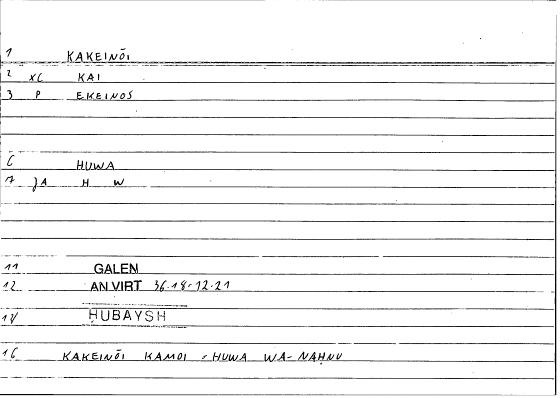 1 KAKEINŌI
2 XC KAI
3 P EKEINOS
6 HUWA
7 JA H W
11 GALEN
12 AN VIRT 36-18-12-21
14 ḤUBAYSH
16 KAKEINŌI KAMOI = HUWA WA-NAḤNU